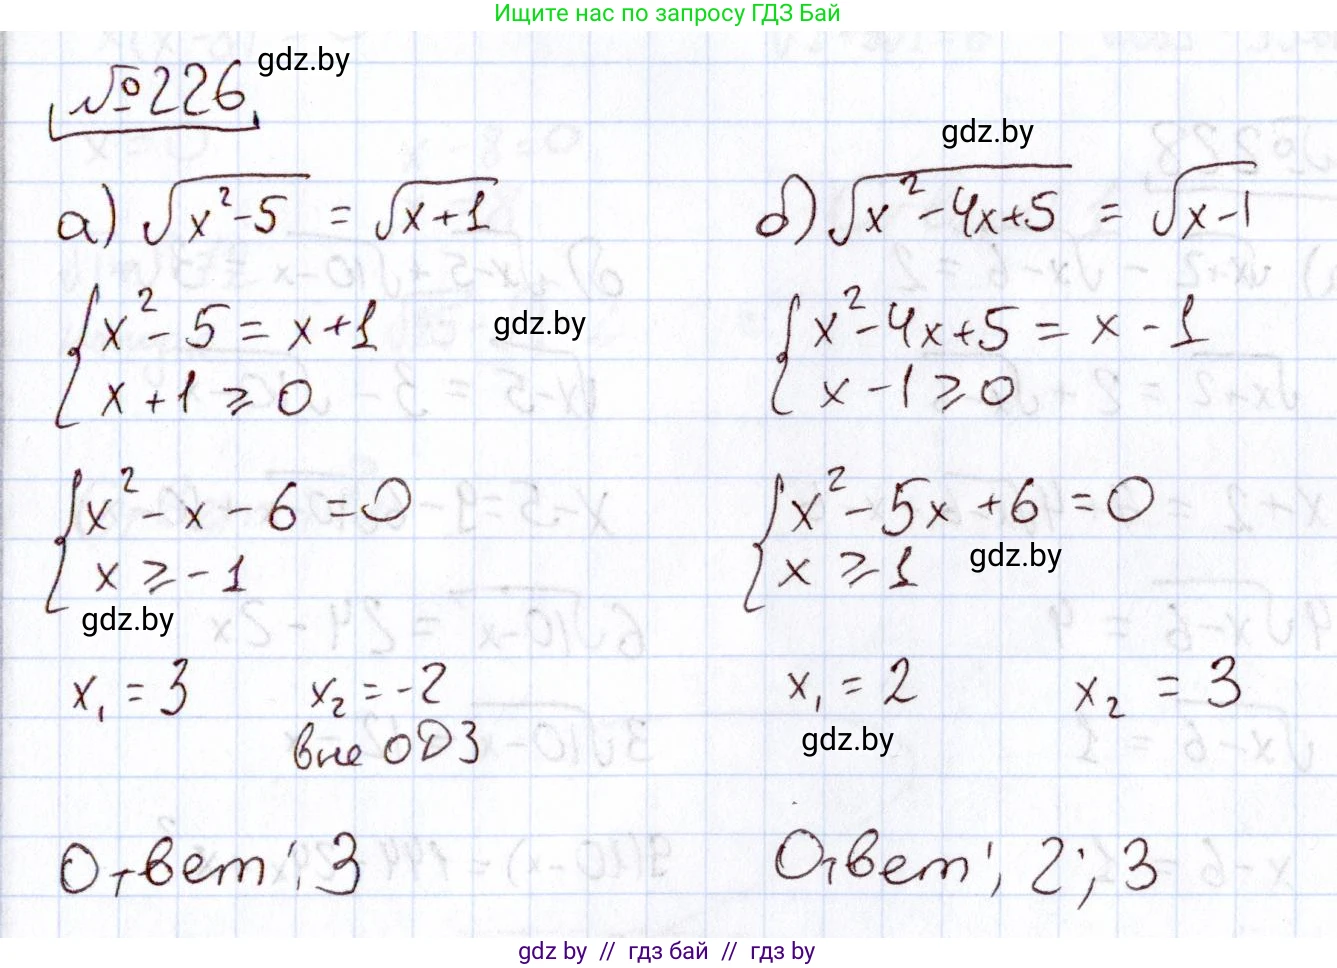 Ищите нас по запросу ГДЗ Бай
№226
gdz.by
а) √(x²-5) = √(x+1)
{ x² - 5 = x+1
x + 1 ≥ 0
gdz.by
{ x² - x - 6 = 0
x ≥ -1
gdz.by
x₁ = 3 x₂ = -2
вне ОДЗ
Ответ: 3
gdz.by
б) √(x²-4x+5) = √(x-1)
{ x²-4x+5 = x - 1
x - 1 ≥ 0
{ x² - 5x + 6 = 0
x ≥ 1
gdz.by
x₁ = 2 x₂ = 3
gdz.by
Ответ: 2; 3
gdz by // гдз бай // гдз by